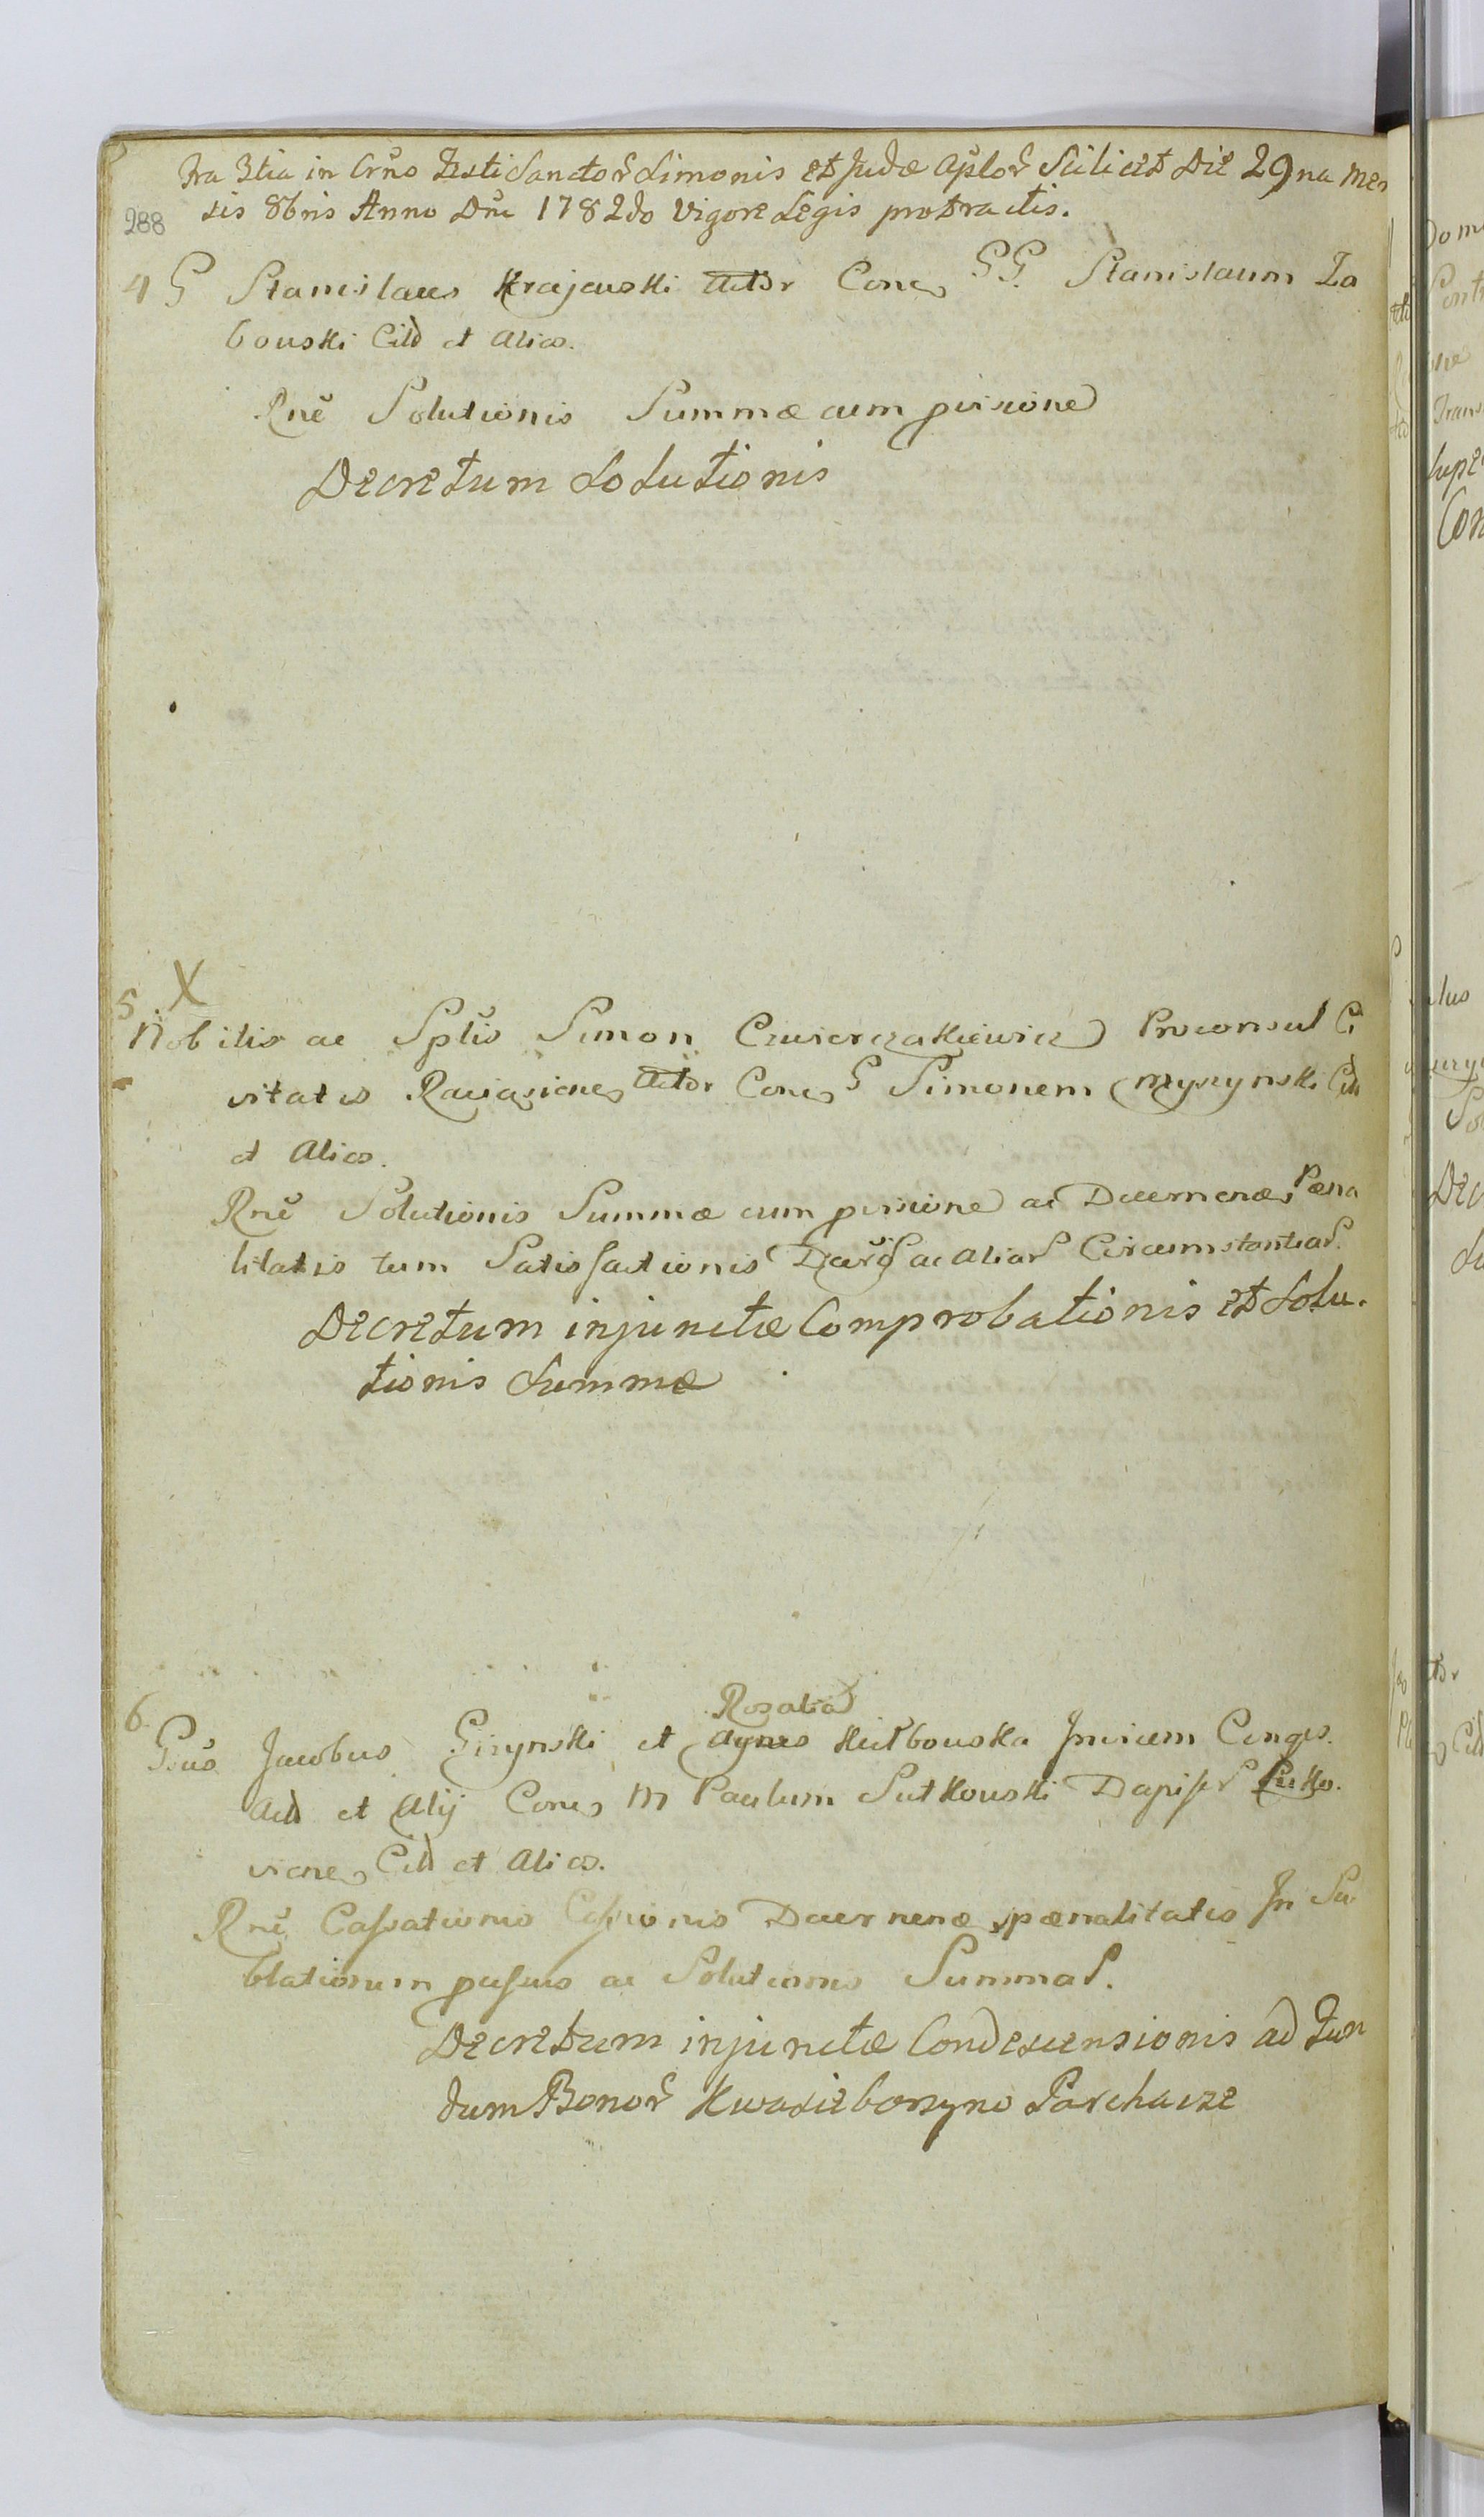 Fra 3tia in Crno Festi Sanctor Simonis et Judæ Aplor Scilicet Die 29na Men
sis 8bris Anno Dni 1782do Vigore Legis protractis.
288
4 G Stanislaus Krajewski Actor Conc GG. Stanislaum Za
bouski Citd et Alios.
Rne Solutionis Summæ cum pissione
Decretum Solutionis
5. X
Nobilis ac Splis Simon Czwierczakiewicz Proconsul Ci
vitatis Raviasienes Actor Conc G Simonem Myszynski Citd
et Alios.
Rne Solutionis Summæ cum pissione ac Decernenæ Pæna
litatis tum Satisfactionis ac aliar Circumstantiar.
Decretum injunctæ Comprobationis et Solu.
tionis Summæ
6.
Rosalia
Gsus Jacobus Gizynski et Agnes Kielbouska Invicem Conges.
Actd et Alij Conc M Paulum Sutkouski Dapifer Socha.
viene Citd et Alios.
Rne Cassationis Cessionis Decernenæ pænalitatis In Su
blationum ac Solutionis Summar.
Decretum injunctæ Condescensionis ad Fun
dum Bonor Kwasieborzyno Parchacze